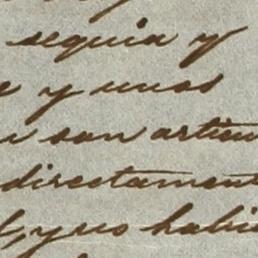 seguia y
e y unos
son artien
directament
y no habi